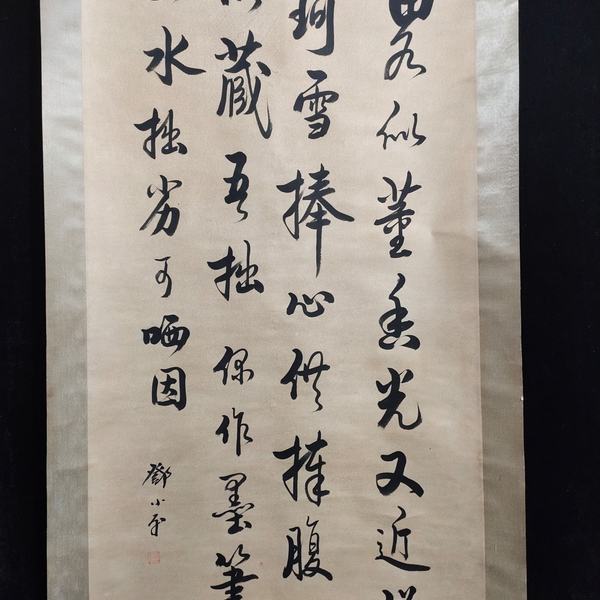 畧似董香光又近
珂雪捧心供捧腹
藏吾拙作墨
水拙劣可哂因
鄧小平